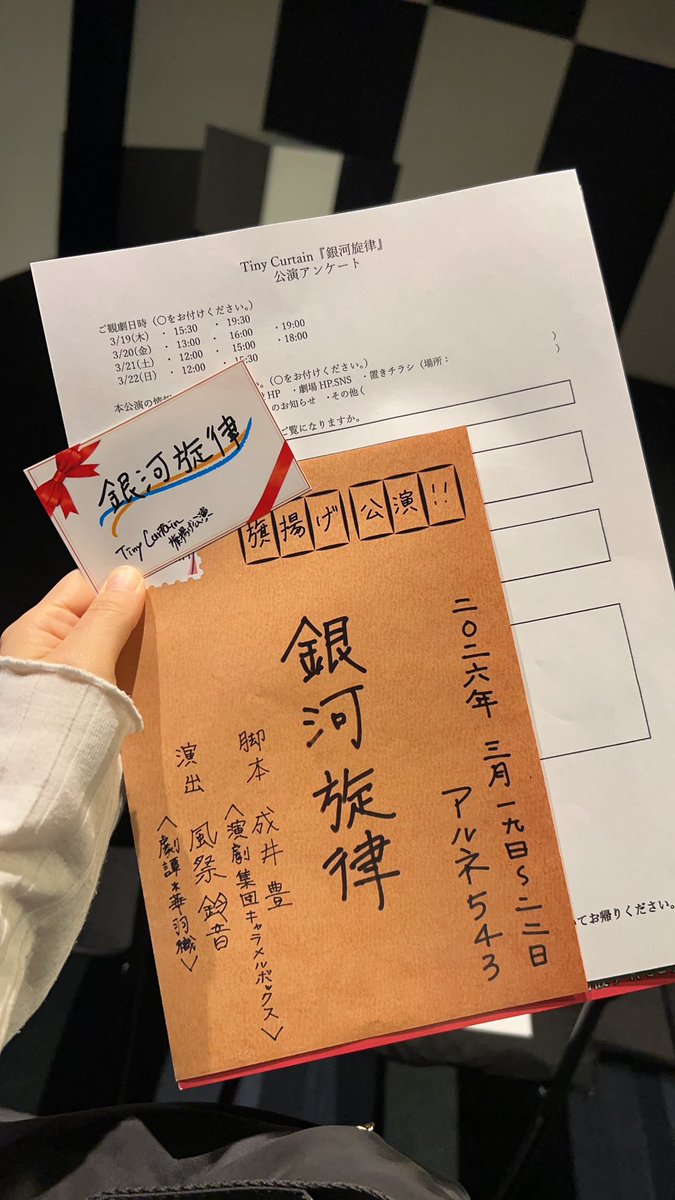 Tiny Curtain『銀河旋律』
公演アンケート
ご観劇日時（〇をお付けください。）
3/19(木) ・ 15:30 ・ 19:30
3/20(金) ・ 13:00 ・ 16:00 ・19:00
3/21(土) ・ 12:00 ・ 15:00 ・18:00
3/22(日) ・ 12:00 ・ 15:30
本公演の情
。（〇をお付けください。）
HP ・劇場 HP.SNS ・置きチラシ（場所： ）
のお知らせ ・その他（ ）
ご覧になりますか。
てお帰りください。
銀河旋律
Tiny Curtain
旗揚げ公演
旗揚げ公演!!
二〇二六年 三月一九日～二二日
アルネ543
銀河旋律
脚本 成井 豊
〈演劇集団キャラメルボックス〉
演出 風祭 鈴音
〈劇譚＊華羽織〉